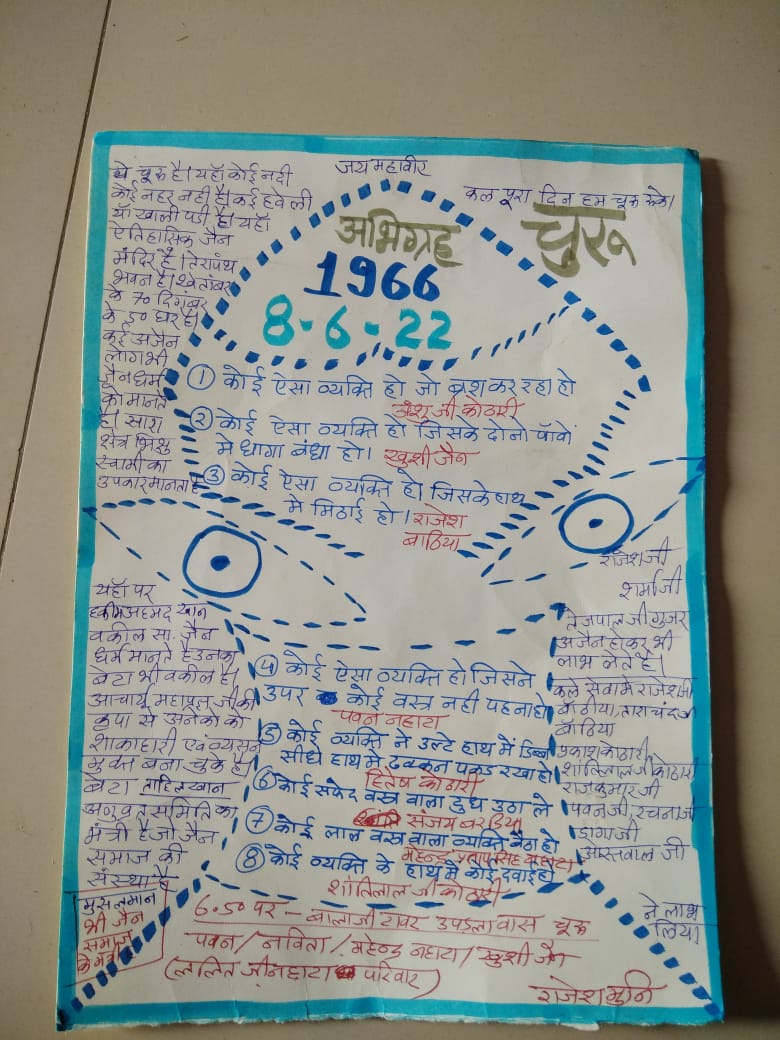 जय महावीर
ये चूरू है। यहाँ कोई नदी
कोई नहर नही है। कई हवेली
याँ खाली पडी है। यहाँ
ऐतिहासिक जैन
मंदिर है। तेरापंथ
भवन है। श्वेतांबर
के 70 दिगंबर
के 50 घर है।
कई अजैन
लोग भी
जैन धर्म
को मानते
है। सारा
क्षेत्र भिक्षु
स्वामी का
उपकार मानता है
कल पूरा दिन हम चूरू रुके।
चुरू
अभिग्रह
1966
8-6-22
① कोई ऐसा व्यक्ति हो जो ब्रश कर रहा हो
अंशु जी कोठारी
② कोई ऐसा व्यक्ति हो जिसके दोनो पाँवों
मे धागा बंधा हो। खुशी जैन
③ कोई ऐसा व्यक्ति हो जिसके हाथ
मे मिठाई हो। राजेश
बाठिया
यहाँ पर
हकीम अहमद खान
वकील सा. जैन
धर्म मानते है उनका
बेटा भी वकील है।
आचार्य महाप्रज्ञ जी की
कृपा से अनेको को
शाकाहारी एवं व्यसन
मुक्त बना चुके है।
बेटा खान
अणुव्रत समिति का
मंत्री है जो जैन
समाज की
संस्था है
मुसलमान
भी जैन
समाज
के मंत्री
④ कोई ऐसा व्यक्ति हो जिसने
उपर कोई वस्त्र नही पहना हो
पवन नहाटा
⑤ कोई व्यक्ति ने उल्टे हाथ में डिब्बा
सीधे हाथ मे ढक्कन पकड रखा हो
हितेष कोठारी
⑥ कोई सफेद वस्त्र वाला दूध उठा ले
संजय बरडिया
⑦ कोई लाल वस्त्र वाला व्यक्ति बैठा हो
महेन्द्र प्रताप सिंह
⑧ कोई व्यक्ति के हाथ मे कोई दवाई हो
शांतिलाल जी कोठारी
राजेश जी
शर्मा जी
तेजपाल जी गुजर
अजैन होकर भी
लाभ लेते है।
कल सेवा मे राजेश जी
बाँठीया, ताराचंद जी
बाँठिया
प्रकाश कोठारी
शांतिलाल जी कोठारी
राजकुमार जी
पवन जी, रचना जी
डागा जी
आस्तवाल जी
ने लाभ
लिया
6.50 पर - बालाजी टावर उपडला वास चूरू
पवन / नविता / महेन्द्र नहाटा / खुशी जैन
(ललित जी नहाटा परिवार)
राजेश मुनि